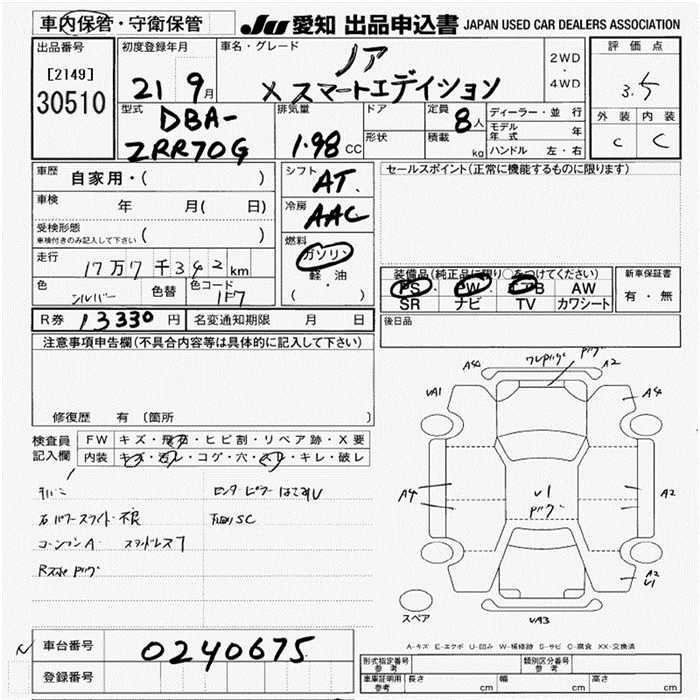 車内保管・守衛保管
JU 愛知 出品申込書 JAPAN USED CAR DEALERS ASSOCIATION
出品番号
[2149]
30510
初度登録年月
21 9月
車名・グレード
ノア
X スマートエディション
2WD
・
4WD
評価点
3.5
外装 内装
C C
型式
DBA-
ZRR70G
排気量
1.98 CC
ドア
形状
定員 8人
積載 kg
ディーラー・並行
モデル年式 年
ハンドル 左・右
車歴 自家用・( )
車検 年 月( 日)
受検形態
車検付きのみ記入して下さい ( )
走行 17万7千342km
色 シルバー 色替 色コード 1F7
シフト AT
冷房 AAC
燃料
ガソリン
軽・油
( )
セールスポイント(正常に機能するものに限ります)
装備品(純正品に限り○をつけてください)
PS・PW・エアB AW
SR ナビ TV カワシート
新車保証書
有・無
R券 13330円 名変通知期限 月 日
後日品
注意事項申告欄(不具合内容等は具体的に記入して下さい)
修復歴 有 〔箇所
検査員記入欄
FW キズ・飛石・ヒビ割・リペア跡・X要
内装 キズ・汚レ・コゲ・穴・スレ・キレ・破レ
右パワースライド不良
A40 A2
UA1 A4
A4 U1 A2
A2
U1
UA3
スペア
A-キズ E-エクボ U-凹み W-補修跡 S-サビ C-腐食 XX-交換済
車台番号 0240675
登録番号
形式指定番号 参考 類別区分番号 参考
車庫証明用 参考 長さ cm 幅 cm 高さ cm